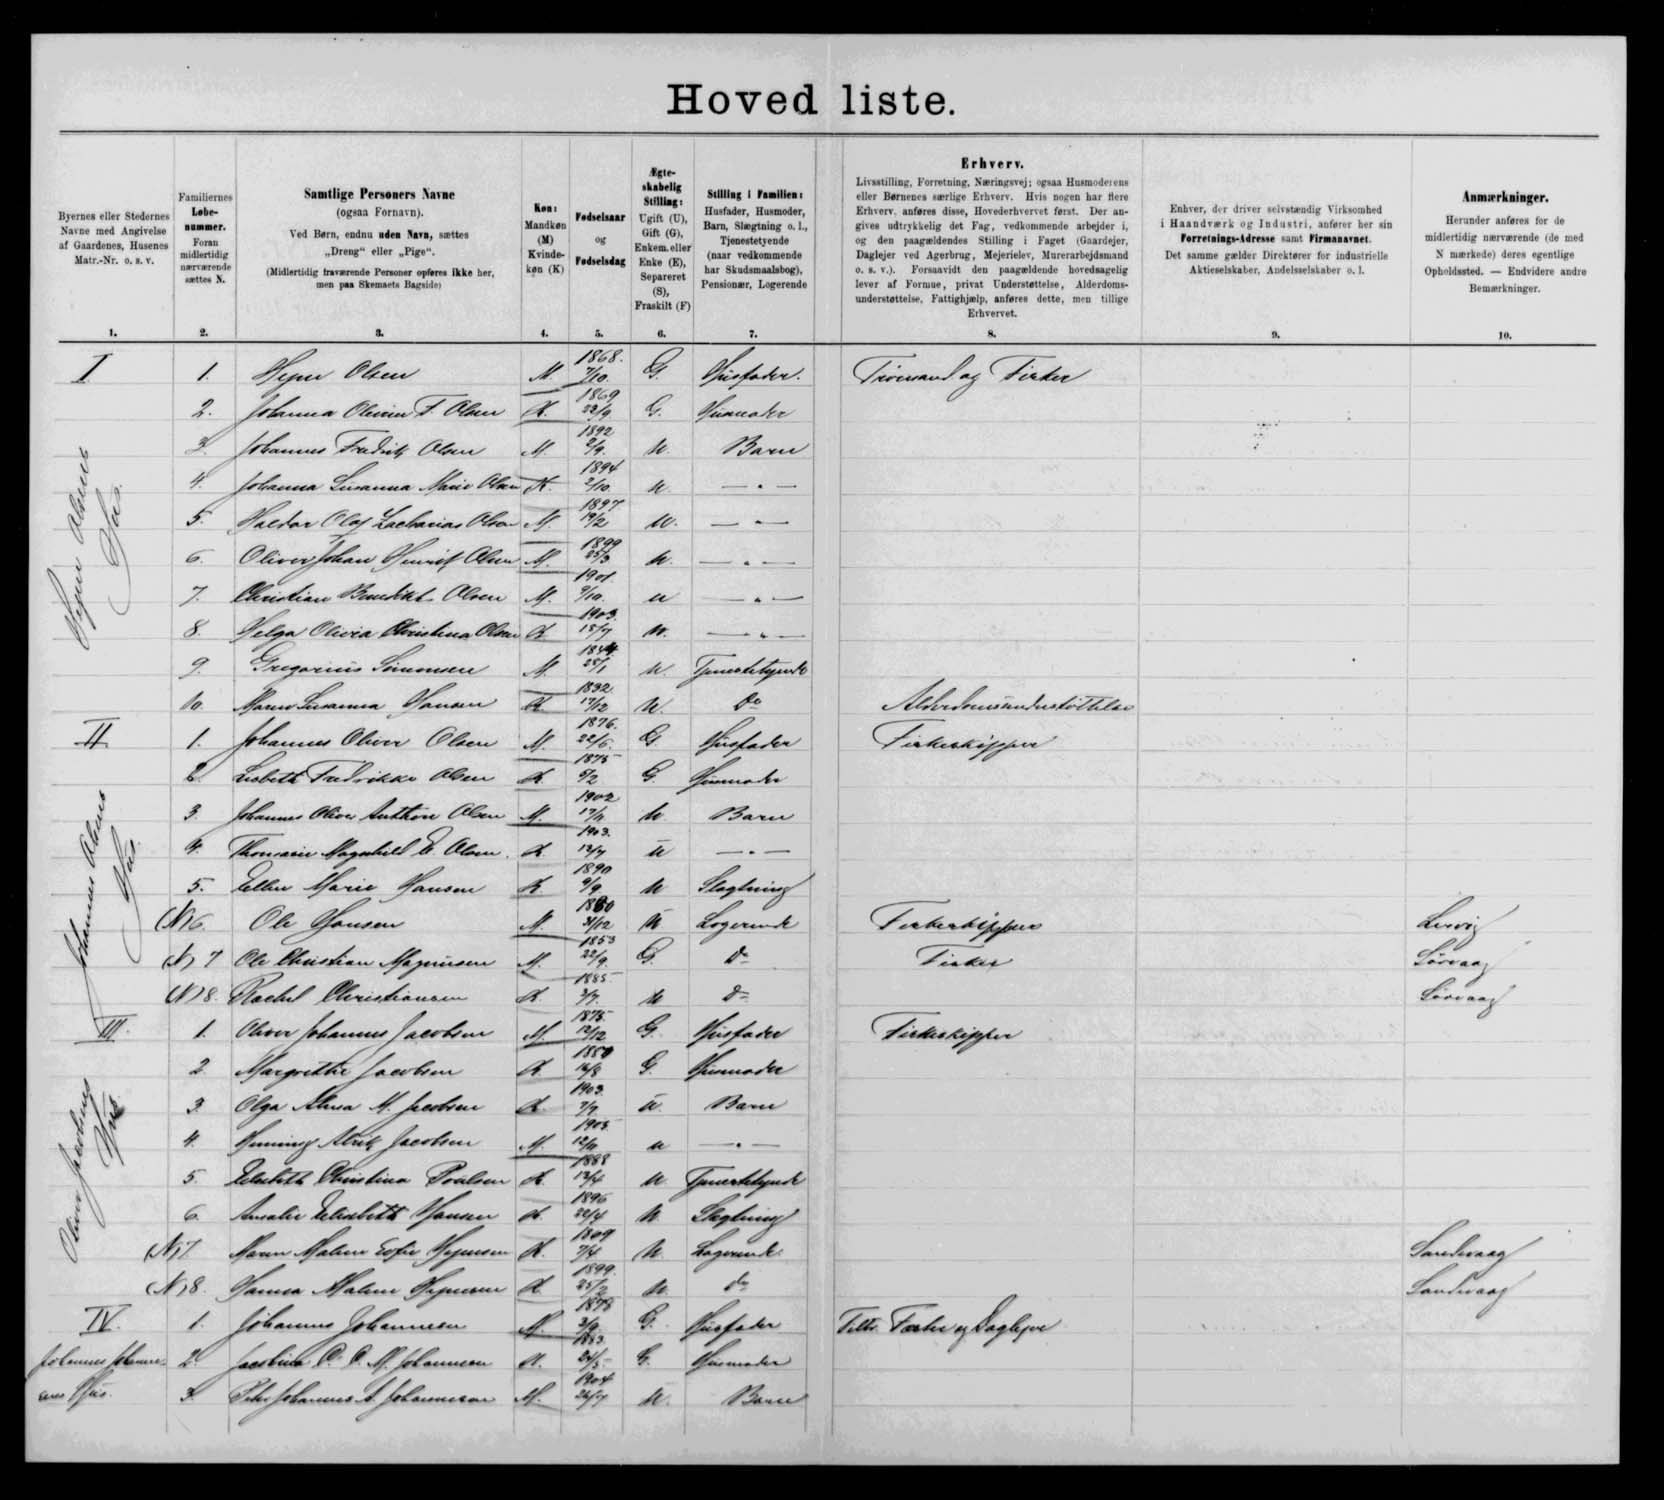 Hoved liste.
Byernes eller Stedernes Navne med Angivelse af Gaardenes, Husenes Matr.-Nr. o. s. v.
Familiernes Løbenummer. Foran midlertidig nærværende sættes N.
Samtlige Personers Navne
(ogsaa Fornavn).
Ved Børn, endnu uden Navn, sættes „Dreng“ eller „Pige“.
(Midlertidig fraværende Personer opføres ikke her, men paa Skemaets Bagside)
Køn: Mandkøn (M) Kvindekøn (K)
Fødselsaar og Fødselsdag
Ægteskabelig Stilling: Ugift (U), Gift (G), Enkem. eller Enke (E), Separeret (S), Fraskilt (F)
Stilling i Familien: Husfader, Husmoder, Barn, Slægtning o. l., Tjenestetyende (naar vedkommende har Skudsmaalsbog), Pensionær, Logerende
Erhverv.
Livsstilling, Forretning, Næringsvej; ogsaa Husmoderens eller Børnenes særlige Erhverv. Hvis nogen har flere Erhverv, anføres disse, Hovederhvervet først. Der angives udtrykkelig det Fag, vedkommende arbejder i, og den paagældendes Stilling i Faget (Gaardejer, Daglejer ved Agerbrug, Mejerielev, Murerarbejdsmand o. s. v.). Forsaavidt den paagældende hovedsagelig lever af Formue, privat Understøttelse, Alderdomsunderstøttelse, Fattighjælp, anføres dette, men tillige Erhvervet.
Enhver, der driver selvstændig Virksomhed i Haandværk og Industri, anfører her sin Forretnings-Adresse samt Firmanavnet. Det samme gælder Direktører for industrielle Aktieselskaber, Andelsselskaber o. l.
Anmærkninger.
Herunder anføres for de midlertidig nærværende (de med N mærkede) deres egentlige Opholdssted. — Endvidere andre Bemærkninger.
1. 2. 3. 4. 5. 6. 7. 8. 9. 10.
I 1. Olsen M. 1868. 7/10. G. Husfader. og Fisker
2. Johanna F. Olsen K. 1869 22/9. G. Husmoder
3. Johannes Fredrik Olsen M. 1892 2/9. U. Barn
4. Johanna Susanna Marie Olsen K. 1894 2/10. U. — " —
5. Haldor Olaf Zacharias Olsen M. 1897 19/2 U. — " —
6. Oliver Johan Henrik Olsen M. 1899 25/3 U. — " —
7. Christian Benedikt Olsen M. 1901. 7/10. U — " —
8. Helga Olivia Christina Olsen K. 1903. 15/7 U. — " —
9. Gregorius Simonsen M. 25/1 U. Tjenestetyende
10. Maren Susanna Hansen K. 1832. 17/12 U. Do Alderdomsunderstøttelse
Olsens Hus.
II 1. Johannes Oliver Olsen M. 1876. 22/6. G. Husfader Fiskeskipper
2. Lisbeth Fredrikke Olsen K. 1875 5/2 G. Husmoder
3. Johannes Oliver Anthon Olsen M. 1902 17/11 U Barn
4. Magnhild E. Olsen. K. 1903. 12/7 U — " —
5. Ellen Marie Hansen K. 1890 9/9 U Slægtning
(N) 6. Ole Hansen M. 31/12 U Logerende Fiskeskipper
(N) 7 Ole Christian Magnusen M. 1853 22/9. G. Do Fisker Sörvaag
(N) 8. Rachel Christiansen K. 1885. 3/7. U Do Sörvaag
Johannes Olsens Hus.
III. 1. Oliver Johannes Jacobsen M. 1875. 12/12 G. Husfader Fiskeskipper
2. Margrethe Jacobsen K. 1880 14/8 G. Husmoder
3. Olga Alma M. Jacobsen K. 1903. 7/7 U. Barn
4. Henning Jacobsen M. 1905 12/11 U — " —
5. Elisbeth Christina Poulsen K. 1888 13/4 U. Tjenestetyende
6. Amalie Elisabeth Hansen K. 1896 22/4 U. Slægtning
(N) 7. Maren Malene Sofie K. 7/4 U. Logerende Sandevaag
(N) 8. Hanna Malene K. 1899. U. Do Sandevaag
Oliver Jacobsens Hus
IV. 1. Johannes Johannesen M. 1878 3/9 G. Husfader Fisker og Daglejer
2. Jacobina C. C. M. Johannesen K. 1883. 24/5 G. Husmoder
3. Peter Johannes A. Johannesen M. 1904 26/7 U. Barn
Johannes Johannesens Hus.